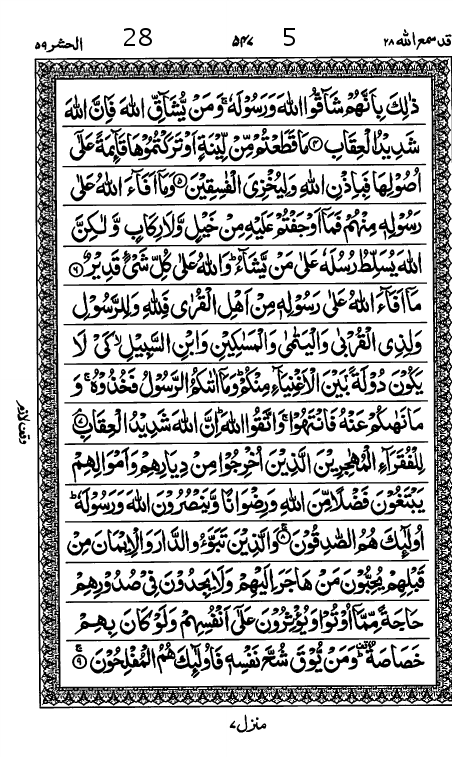 قد سمع الله ۲۸ 5 ۵۴۷ 28 الحشر ۵۹
ذٰلِكَ بِاَنَّهُمْ شَآقُّوا اللّٰهَ وَرَسُوْلَهٗ ۚ وَمَنْ يُّشَآقِّ اللّٰهَ فَاِنَّ اللّٰهَ
شَدِيْدُ الْعِقَابِ ۴ مَا قَطَعْتُمْ مِّنْ لِّيْنَةٍ اَوْ تَرَكْتُمُوْهَا قَآئِمَةً عَلٰٓى
اُصُوْلِهَا فَبِاِذْنِ اللّٰهِ وَلِيُخْزِيَ الْفٰسِقِيْنَ ۵ وَمَآ اَفَآءَ اللّٰهُ عَلٰى
رَسُوْلِهٖ مِنْهُمْ فَمَآ اَوْجَفْتُمْ عَلَيْهِ مِنْ خَيْلٍ وَّلَا رِكَابٍ وَّلٰكِنَّ
اللّٰهَ يُسَلِّطُ رُسُلَهٗ عَلٰى مَنْ يَّشَآءُ ؕ وَاللّٰهُ عَلٰى كُلِّ شَيْءٍ قَدِيْرٌ ۶
مَآ اَفَآءَ اللّٰهُ عَلٰى رَسُوْلِهٖ مِنْ اَهْلِ الْقُرٰى فَلِلّٰهِ وَلِلرَّسُوْلِ
وَلِذِي الْقُرْبٰى وَالْيَتٰمٰى وَالْمَسٰكِيْنِ وَابْنِ السَّبِيْلِ ۙ كَيْ لَا
يَكُوْنَ دُوْلَةًۢ بَيْنَ الْاَغْنِيَآءِ مِنْكُمْ ؕ وَمَآ اٰتٰىكُمُ الرَّسُوْلُ فَخُذُوْهُ ۚ وَ
مَا نَهٰىكُمْ عَنْهُ فَانْتَهُوْا ۚ وَاتَّقُوا اللّٰهَ ؕ اِنَّ اللّٰهَ شَدِيْدُ الْعِقَابِ ۷
وقف لازم
لِلْفُقَرَآءِ الْمُهٰجِرِيْنَ الَّذِيْنَ اُخْرِجُوْا مِنْ دِيَارِهِمْ وَاَمْوَالِهِمْ
يَبْتَغُوْنَ فَضْلًا مِّنَ اللّٰهِ وَرِضْوَانًا وَّيَنْصُرُوْنَ اللّٰهَ وَرَسُوْلَهٗ ؕ
اُولٰٓئِكَ هُمُ الصّٰدِقُوْنَ ۸ وَالَّذِيْنَ تَبَوَّؤُ الدَّارَ وَالْاِيْمَانَ مِنْ
قَبْلِهِمْ يُحِبُّوْنَ مَنْ هَاجَرَ اِلَيْهِمْ وَلَا يَجِدُوْنَ فِيْ صُدُوْرِهِمْ
حَاجَةً مِّمَّآ اُوْتُوْا وَيُؤْثِرُوْنَ عَلٰٓى اَنْفُسِهِمْ وَلَوْ كَانَ بِهِمْ
خَصَاصَةٌ ؕ وَمَنْ يُّوْقَ شُحَّ نَفْسِهٖ فَاُولٰٓئِكَ هُمُ الْمُفْلِحُوْنَ ۹
منزل ۷